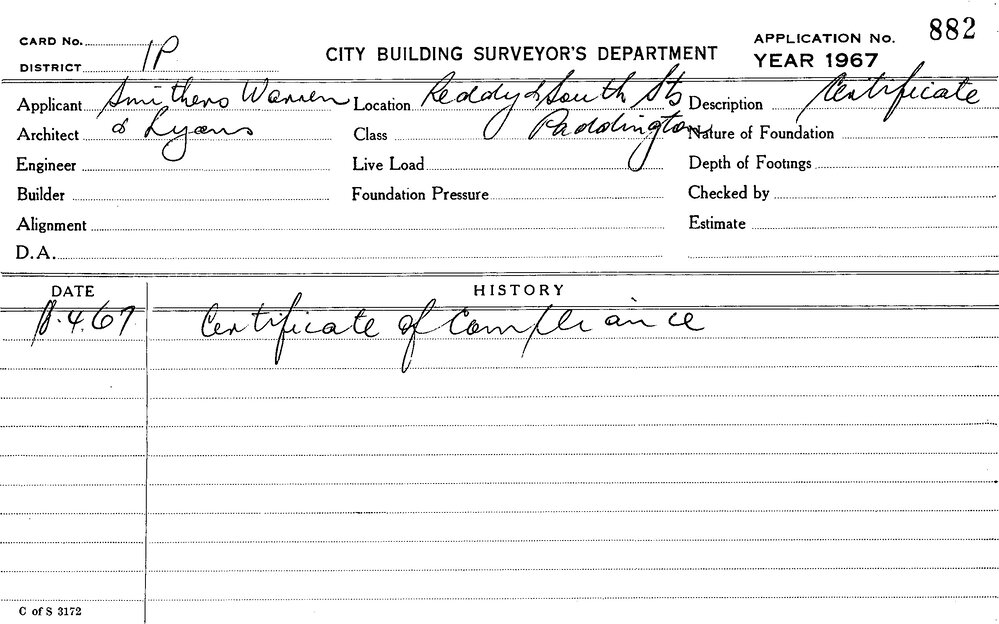 CARD No.
DISTRICT 1P
CITY BUILDING SURVEYOR'S DEPARTMENT
APPLICATION No. 882
YEAR 1967
Applicant Smithers Warren Location Reddy & South Sts Description Certificate
Architect & Lyons Class Paddington Nature of Foundation
Engineer Live Load Depth of Footings
Builder Foundation Pressure Checked by
Alignment Estimate
D.A.
DATE HISTORY
.4.67 Certificate of Compliance
C of S 3172